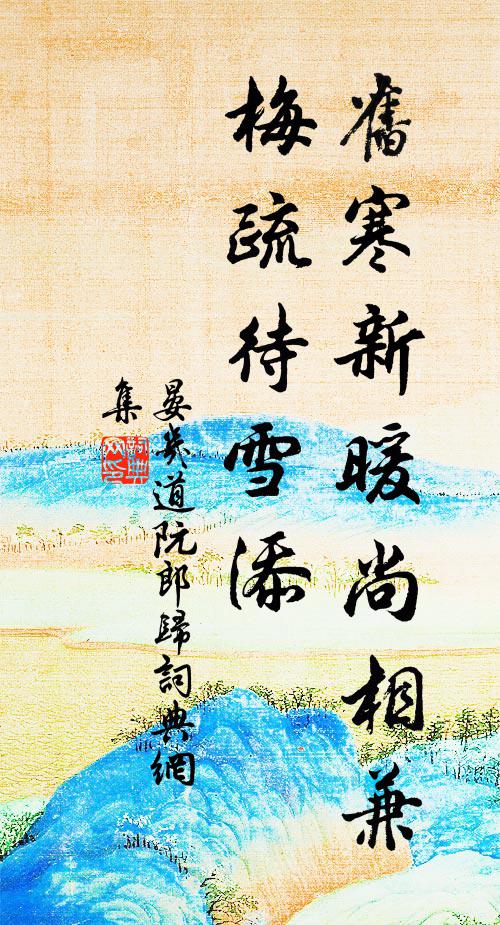 舊寒新暖尚相兼
梅疏待雪添
晏幾道阮郎歸詞典網
集